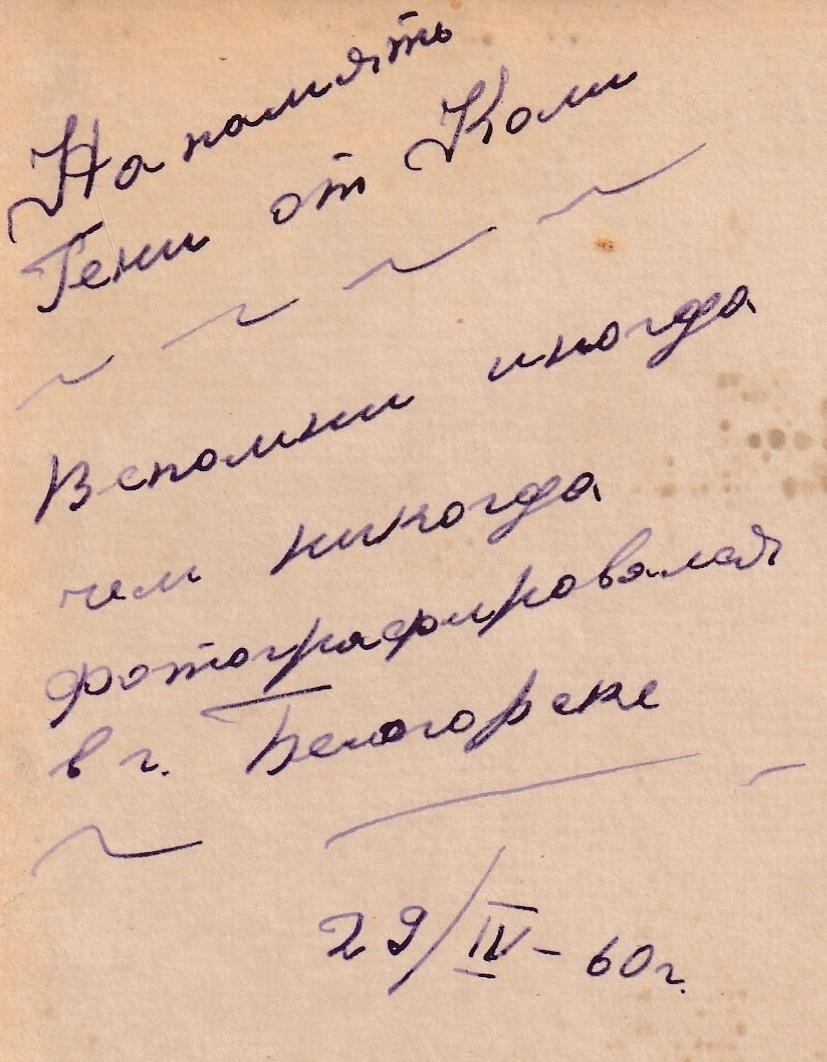 На память
Гени от Коли
Вспомни иногда
чем никогда
фотографировался
в г. Белогорске
29/IV - 60 г.